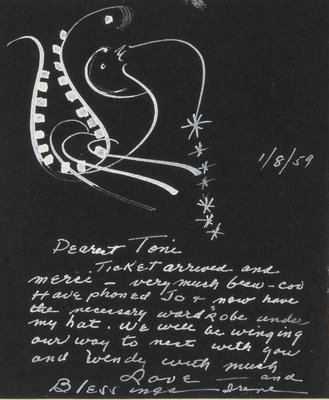 1/8/59
Dearest Toni
Ticket arrived and
merci - very much beau-coo
Have phoned Jo + now have
the necessary wardrobe under
my hat. We will be winging
our way to nest with you
and Wendy with much
Love - and
Blessings Irene